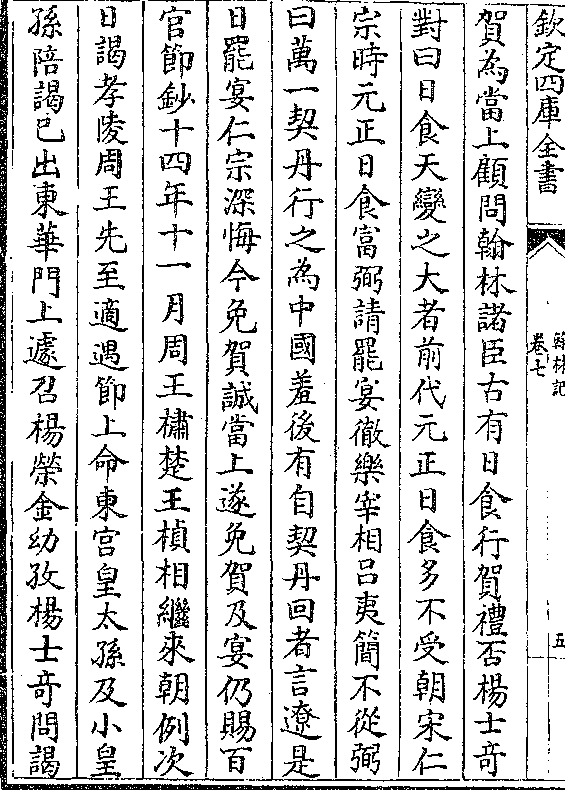 欽定四庫全書
翰林記
卷七
五
賀為當上顧問翰林諸臣古有日食行賀禮否楊士奇
對曰日食天變之大者前代元正日食多不受朝宋仁
宗時元正日食富弼請罷宴徹樂宰相吕夷簡不從弼
曰萬一契丹行之為中國羞後有自契丹回者言遼是
日罷宴仁宗深悔今免賀誠當上遂免賀及宴仍賜百
官節鈔十四年十一月周王橚楚王楨相繼來朝例次
日謁孝陵周王先至適遇節上命東宫皇太孫及小皇
孫陪謁已出東華門上遽召楊榮金幼孜楊士奇問謁